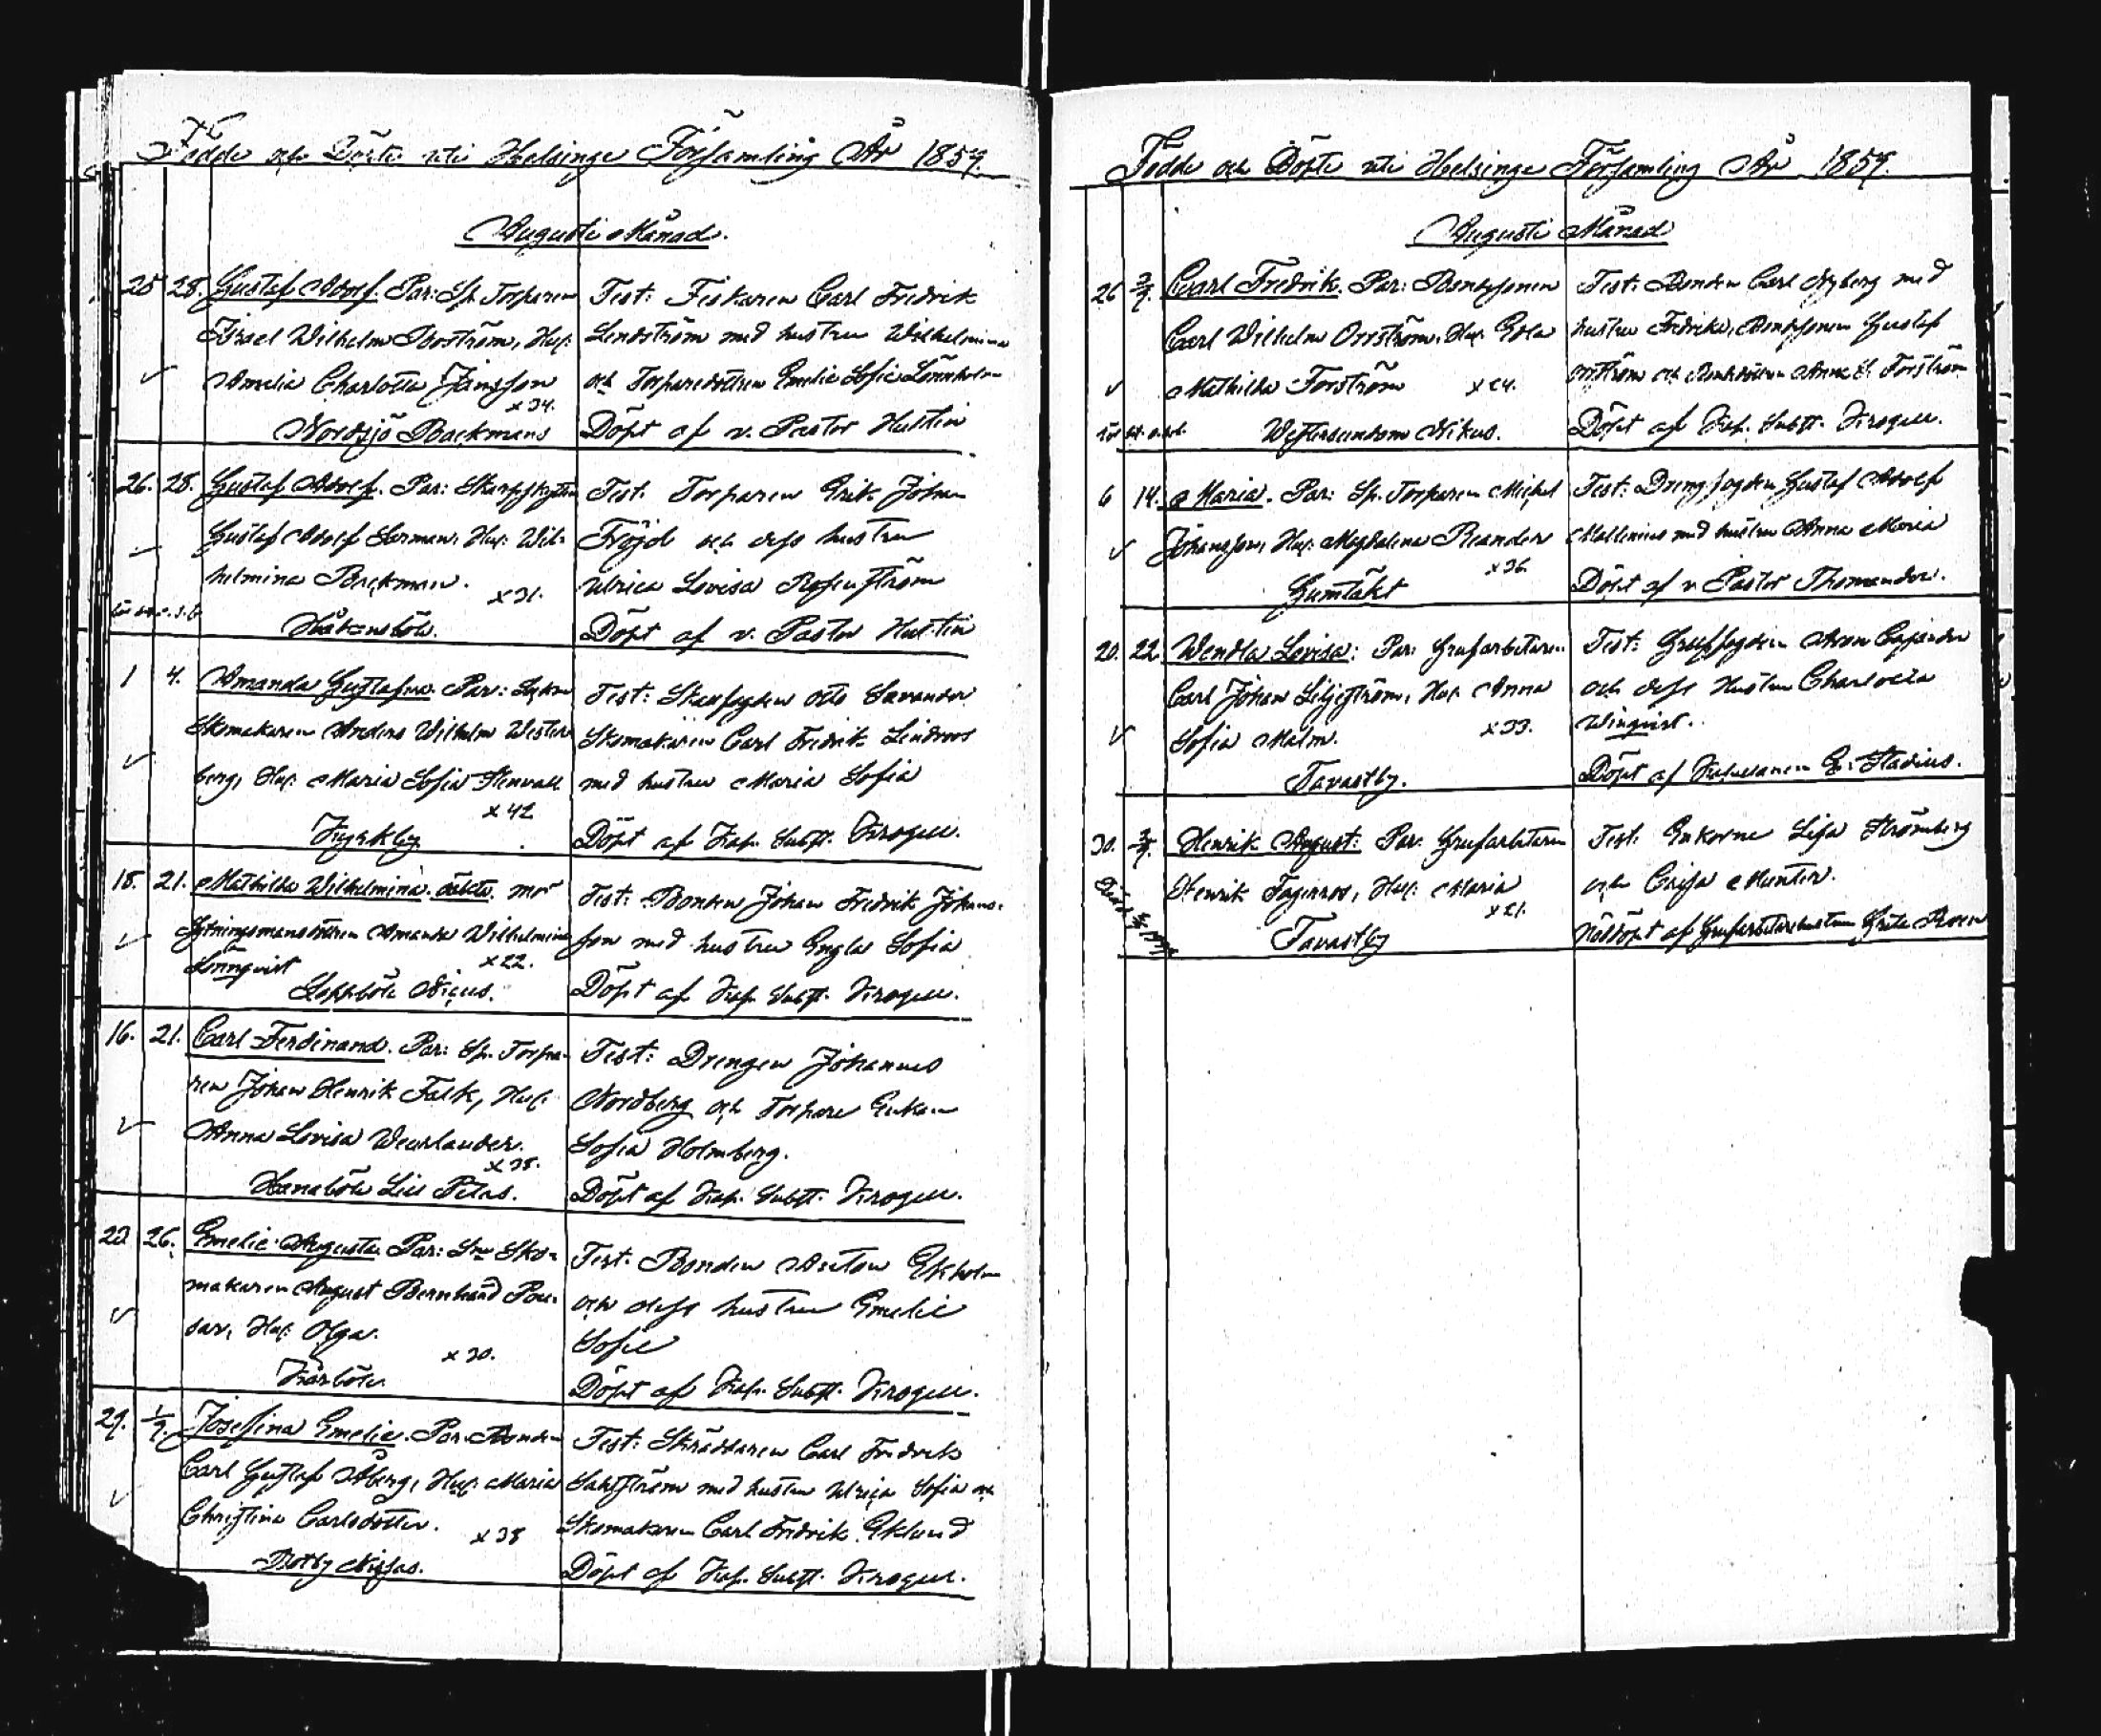 Födde och Döpte uti Helsinge Församling År 1859.
Augusti Månad.
25 28. Gustaf Adolf. Par: Sp. Torparen
Israel Wilhelm Åboström, Hus:
Amalia Charlotta Jansson
x 34.
Nordsjö Backmans
Test: Fiskaren Carl Fredrik
Lindström med hustru Wilhelmina
och Torparedottren Emelie Sofie Lönnholm
Döpt af v. Pastor Hultin
26. 28. Gustaf Adolf. Par: Skarpskytten
Gustaf Adolf Lerman, Hus: Wil-
helmina Backman.
x 31.
Håkansböle.
Test. Torparen Erik Johan
Fröjd och dess hustru
Ulrica Lovisa Rosenström
Döpt af v. Pastor Hultin
1 4. Amanda Gustafva. Par: Sockne
Skomakaren Anders Wilhelm Wester-
berg, Hus: Maria Sofia Stenvall
x 42
Kyrkby
Test: Skallfogden Otto Savander
Skomakaren Carl Fredrik Lindroos
med hustru Maria Sofia
Döpt af Kap. Subst. Krogell.
18. 21. Mathilda Wilhelmina. oäkta. Mor
Sytningsmansdottren Amanda Wilhelmina
Lönnqvist
x 22.
Loppböle Nicus.
Test: Bonden Johan Fredrik Johans-
son med hustru Engla Sofia
Döpt af Kap. Subst. Krogell.
16. 21. Carl Ferdinand. Par: Sp. Torpa-
ren Johan Henrik Falk, Hus:
Anna Lovisa Weurlander.
x 38.
Hanaböle Lill Petas.
Test: Drengen Johannes
Nordberg och Torpare Enkan
Sofia Holmberg.
Döpt af Kap. Subst. Krogell.
22 26. Emelie Augusta. Par: Sne Sko-
makaren August Bernhard Pou-
sar, Hus: Olga.
x 30.
Kårböle
Test. Bonden Anton Ekholm
och dess hustru Emelie
Sofie
Döpt af Kap. Subst. Krogell.
29. 1/9. Josefina Emelie. Par: Bonden
Carl Gustaf Åberg, Hus: Maria
Christina Carlsdotter.
x 38
Botby Nissas.
Test: Skräddaren Carl Fredrik
Sahlström med hustru Ulrica Sofia och
Skomakaren Carl Fredrik Eklund
Döpt af Kap. Subst. Krogell.
Födde och Döpte uti Helsinge Församling År 1859.
Augusti Månad
26 2/9. Carl Fredrik. Par: Bondesonen
Carl Wilhelm Orrström, Hus: Edla
Mathilda Forström x 24.
Westersundom Nikus.
Test: Bonden Carl Nyberg med
hustru Fredrika, Bondesonen Gustaf
Orrström och Bondedottren Anna S. Forström
Döpt af Kap. Subst. Krogell.
6 14. Maria. Par: Sp. Torparen Michel
Johansson, Hus: Magdalena Reander
x 36
Gumtäkt
Test: Drengfogden Gustaf Adolf
Mallenius med hustru Anna Maria
Döpt af v. Pastor Thomander.
20. 22. Wendla Lovisa: Par: Grufarbetaren
Carl Johan Liljeström, Hus: Anna
Sofia Malm. x 33.
Tavastby.
Test: Gruffogden Aron Cajander
och dess Hustru Charlotta
Winqvist.
Döpt af Kaluvanen G. Stadius.
30. 2/9. Henrik August: Par: Grufarbetaren
Henrik Fagerroos, Hus: Maria
x 21.
Tavastby
Test. Enkorne Lisa Strömberg
och Caisa Munter.
Nöddöpt af Grufarbetarehustrun Greta Roen